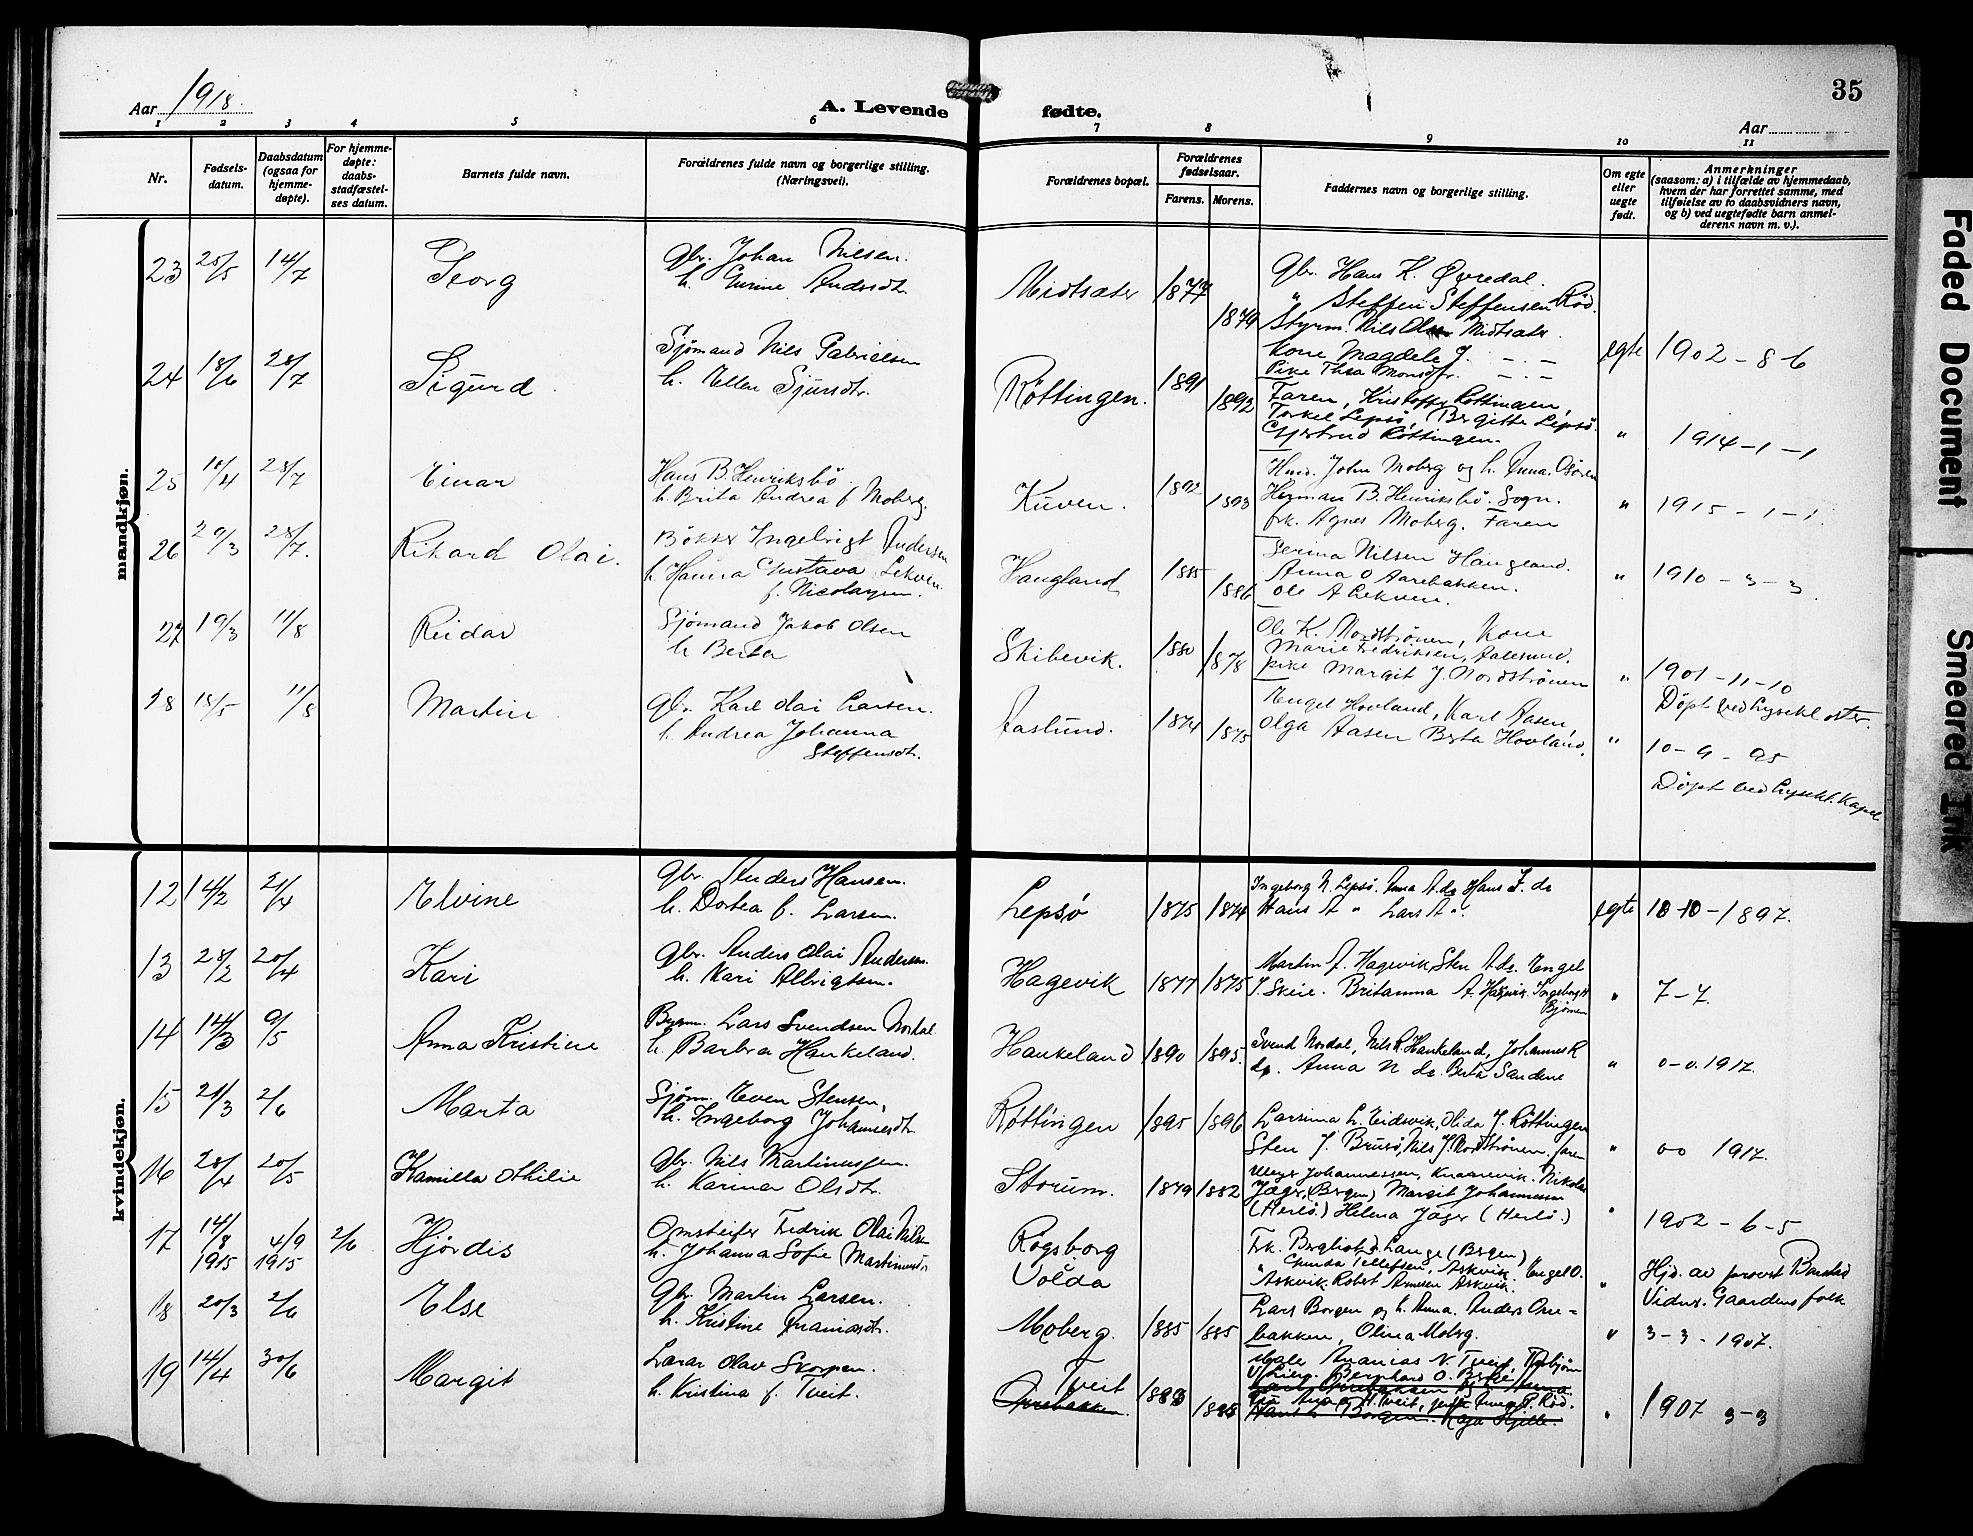 35
Aar 1918.
A. Levende fødte.
Aar
1 2 3 4 5 6 7 8 9 10 11
Nr.
Fødsels-
datum.
Daabsdatum
(ogsaa for
hjemme-
døpte).
For hjemme-
døpte:
daabs-
stadfæstel-
ses datum.
Barnets fulde navn.
Forældrenes fulde navn og borgerlige stilling.
(Næringsvei).
Forældrenes bopæl.
Forældrenes
fødselsaar.
Farens. Morens.
Faddernes navn og borgerlige stilling.
Om egte
eller
uegte
født.
Anmerkninger
(saasom: a) i tilfælde av hjemmedaab,
hvem der har forrettet samme, med
tilføielse av to daabsvidners navn,
og b) ved uegtefødte barn anmel-
derens navn m. v.).
mandkjøn.
23 25/5 14/7 Georg
Gbr. Johan Nilsen.
h. Gurine Andersdt.
Midtsæter 1877 1879
Gbr. Hans K. Øvredal.
" Steffen Steffensen Rød.
Styrm. Nils Olsen Midtsæter
Kone Magdele J. — . —
Pike Thea Monsdtr. — . —
egte 1902 - 8 6
24 18/6 28/7 Sigurd
Sjømand Nils Gabrielsen
h. Ellen Sjursdtr.
Røttingen. 1891 1892
Faren, Kristoffer Røttingen,
Torkel Lepsø, Bergitte Lepsø.
Gjertrud Røttingen.
" 1914 - 1 - 1
25 18/4 28/7 Einar
Hans B. Henriksbø.
h. Brita Andrea f. Moberg.
Kuven. 1892 1893
Hmd. John Moberg og h. Anna. Osøren
Herman B. Henriksbø. Sogn.
frk. Agnes Moberg. Faren
" 1915 - 1 - 1.
26 29/3 28/7. Rikard Olai.
Bøkker Ingebrigt Andersen
h. Hanna Gustava Lekven
f. Nicolaysen.
Haugland 1885 1886
Serina Nilsen Haugland.
Anna O Aarebakken.
Ole A Lekven.
" 1910 - 3 - 3
27 19/3 11/8 Reidar
Sjømand Jakob Olsen
h. Berta
Skibevik. 1880 1878
Ole K. Nordstrønen, Kone
Marie Fredriksen, Aalesund.
pike Margit J. Nordstrønen
" 1901 - 11 - 10
Døpt ved Lysekloster.
28 15/5 11/8 Martin
Gbr. Karl Olai Larsen.
h. Andrea Johanna
Steffensdt.
Aaslund. 1874 1875
Engel Hovland, Karl Aasen,
Olga Aasen Berta Hovland.
" 10 - 9 - 95
Døpt ved Lysekl. Kapel
kvindekjøn.
12 14/2 21/4 Elvine
Gbr. Anders Hansen.
h. Dortea f. Larsen.
Lepsø 1875 1874
Ingeborg N. Lepsø. Anna A. do Hans J. do
Hans A " Lars A ".
egte 10-10-1897.
13 28/2 20/4 Kari
Gbr. Anders Olai Andersen.
h. Kari Albrigtsen.
Hagevik 1877 1875
Martin A. Hagevik, Sten A do. Engel
J. Skeie. Britanna A. Hagevik. Ingeborg H
Bjørnen
" 7 - 7.
14 14/3 9/5 Anna Kristine
Bygm. Lars Svendsen Nordal
h. Barbra Haukeland.
Haukeland 1890 1895.
Svend Nordal, Nils R. Haukeland, Johannes R
do. Anna N do. Berta Sandene
" 0-0. 1917.
15 21/3 2/6 Marta
Sjøm. Even Stensen,
h. Ingeborg Johannesdt.
Røttingen 1895 1896
Larsina L. Eidsvik, Olida J. Røttingen
Sten J. Brusø, Nils J. Nordstrønen. faren
" 00 1917.
16 28/4 20/5 Kamilla Othilie
Gbr. Nils Martinussen.
h. Karina Olsdt.
Storum. 1879 1882
Johannessen, Knarrevik. Nikolai
Jæger, (Bergen) Margit Johannessen
(Herlø.) Helena Jæger (Herlø.)
" 1902 - 6 - 5
17 14/8 1915 4/9 1915 2/6 Hjørdis
Fedrik Olai Nilsen
h. Johanna Sofie Martinusdt.
Røgsborg
Volda
Frk. Bergliot Lange (Bergen)
" Gunda Tellefsen, Askvik. Engel O.
Askvik. Robert Arnesen Askvik.
" Hjd. av provst
Vidner. Gaardens folk
18 20/3 2/6 Else
Gbr. Martin Larsen.
h. Kristine
Moberg. 1885 1885
Lars Borgen og h. Anna. Anders Ore=
bakken, Olina Moberg.
" 3 - 3 - 1907.
19 14/4 30/6 Margit
Lærer Olav Skorpen.
h. Kristina f. Tveit.
Tveit
Orrebakken. 1883 1885
Ananias N. Tveit, Torbjørn
Bernhard O.
Anna H. Tveit, P. Rød.
Borgen. Kaja
" 1907 3-3
Faded Document
Smeared Ink